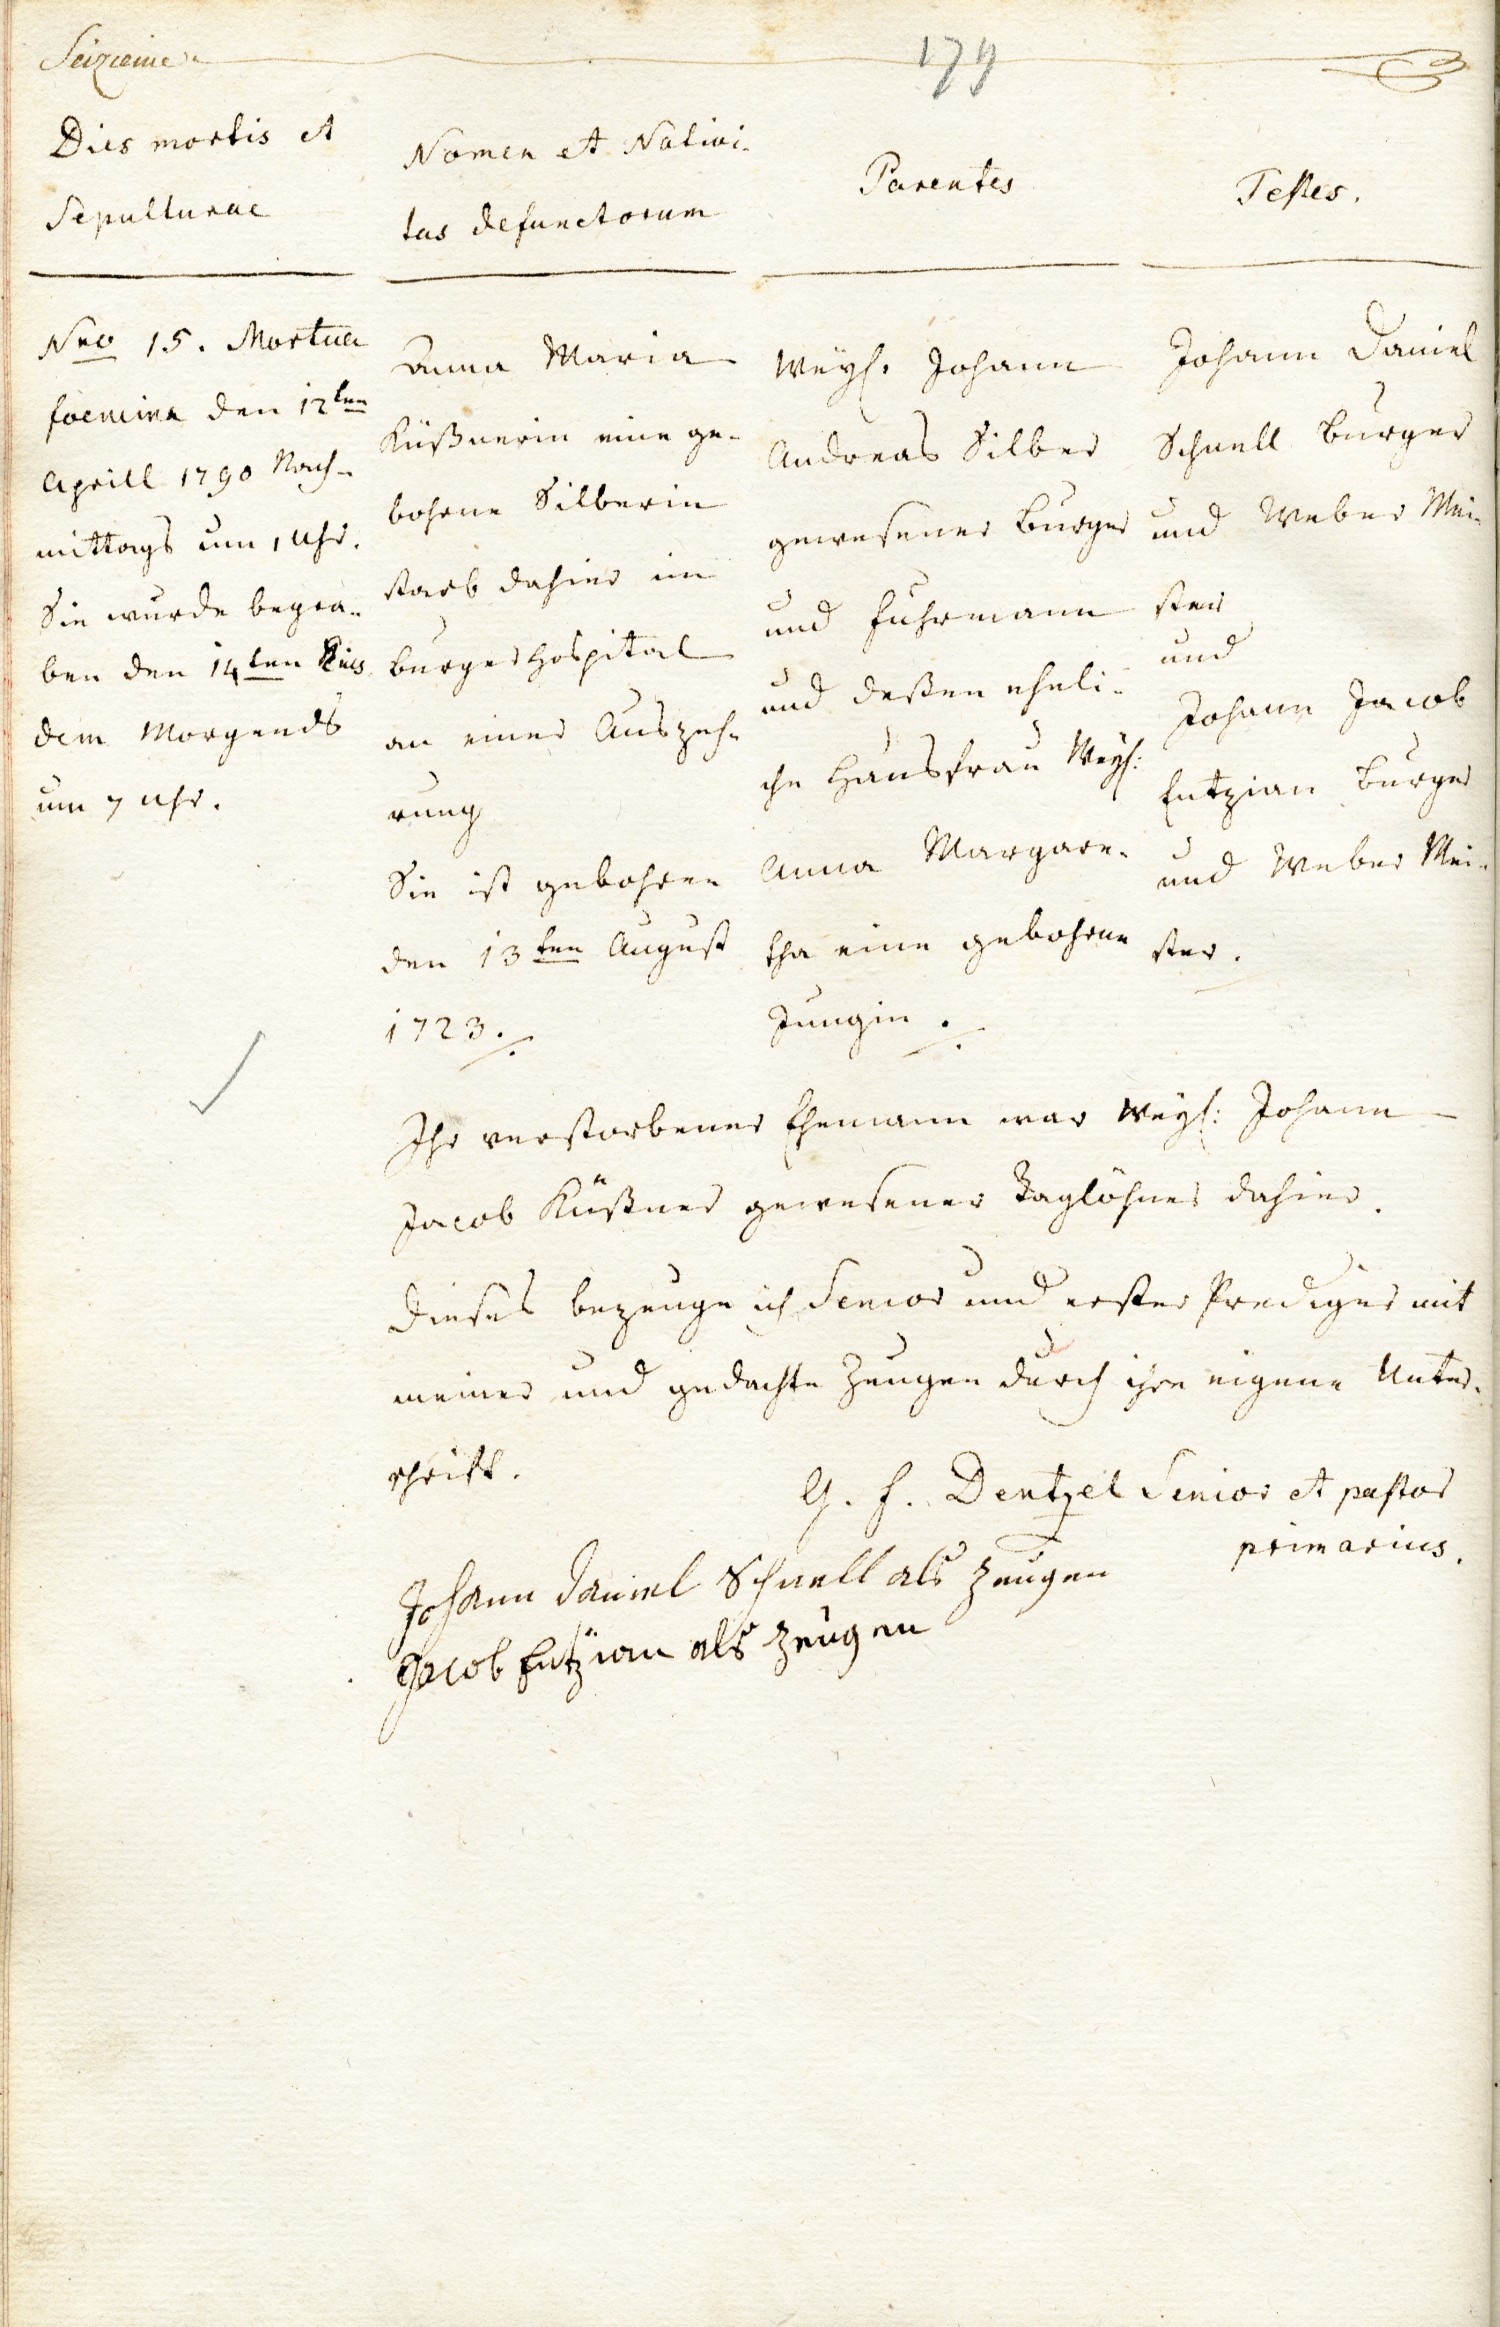 Seizieme
179
Dies mortis et
Sepulturae
Nomen et Nativi-
tas defunctorum
Parentes
Testes.
Nro 15. Mortua
foemina den 12ten
Aprill 1790 Nach-
mittags um 1 Uhr.
Sie wurde begra-
ben den 14ten Eius
dem Morgends
um 7 Uhr.
Anna Maria
Küßnerin eine ge-
bohrne Silberin
starb dahier im
burgerhospital
an einer Auszeh-
rung
Sie ist gebohren
den 13ten August
1723.
Weyl. Johann
Andreas Silber
gewesener Burger
und Fuhrmann
und deßen eheli-
che Hausfrau Weyl:
Anna Margare-
tha eine gebohrne
Jungin.
Johann Daniel
Schnell Burger
und Weber Mei-
ster
und
Johann Jacob
Entzian Burger
und Weber Mei-
ster.
Ihr verstorbener Ehemann war Weyl: Johann
Jacob Küßner gewesener Taglöhner dahier.
Dieses bezeuge ich Senior und erster Prediger mit
meiner und gedachte Zeugen durch ihre eigene Unter-
schrift.
G. F. Dentzel Senior et pastor
primarius.
Johann Daniel Schnell als Zeugen
Jacob Entzian als Zeugen